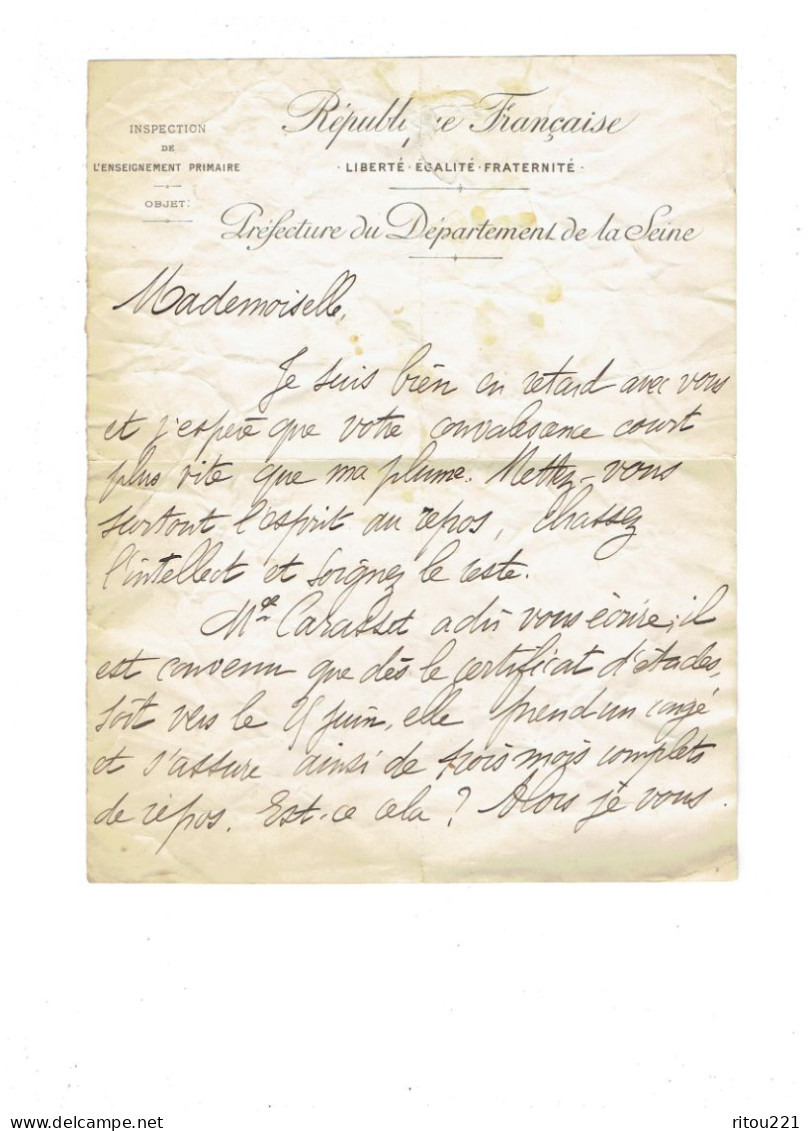 INSPECTION
DE
L'ENSEIGNEMENT PRIMAIRE
OBJET:
République Française
LIBERTÉ · ÉGALITÉ · FRATERNITÉ
Préfecture du Département de la Seine
Mademoiselle,
Je suis bien en retard avec vous
et j'espère que votre convalescence court
plus vite que ma plume. Mettez-vous
surtout l'esprit au repos, chassez
l'intellect et soignez le reste.
Mˡˡᵉ Carasset a dû vous écrire; il
est convenu que dès le certificat d'études,
soit vers le juin, elle prend un congé
et s'assure ainsi de trois mois complets
de repos. Est-ce cela ? Alors je vous
delcampe.net
ritou221